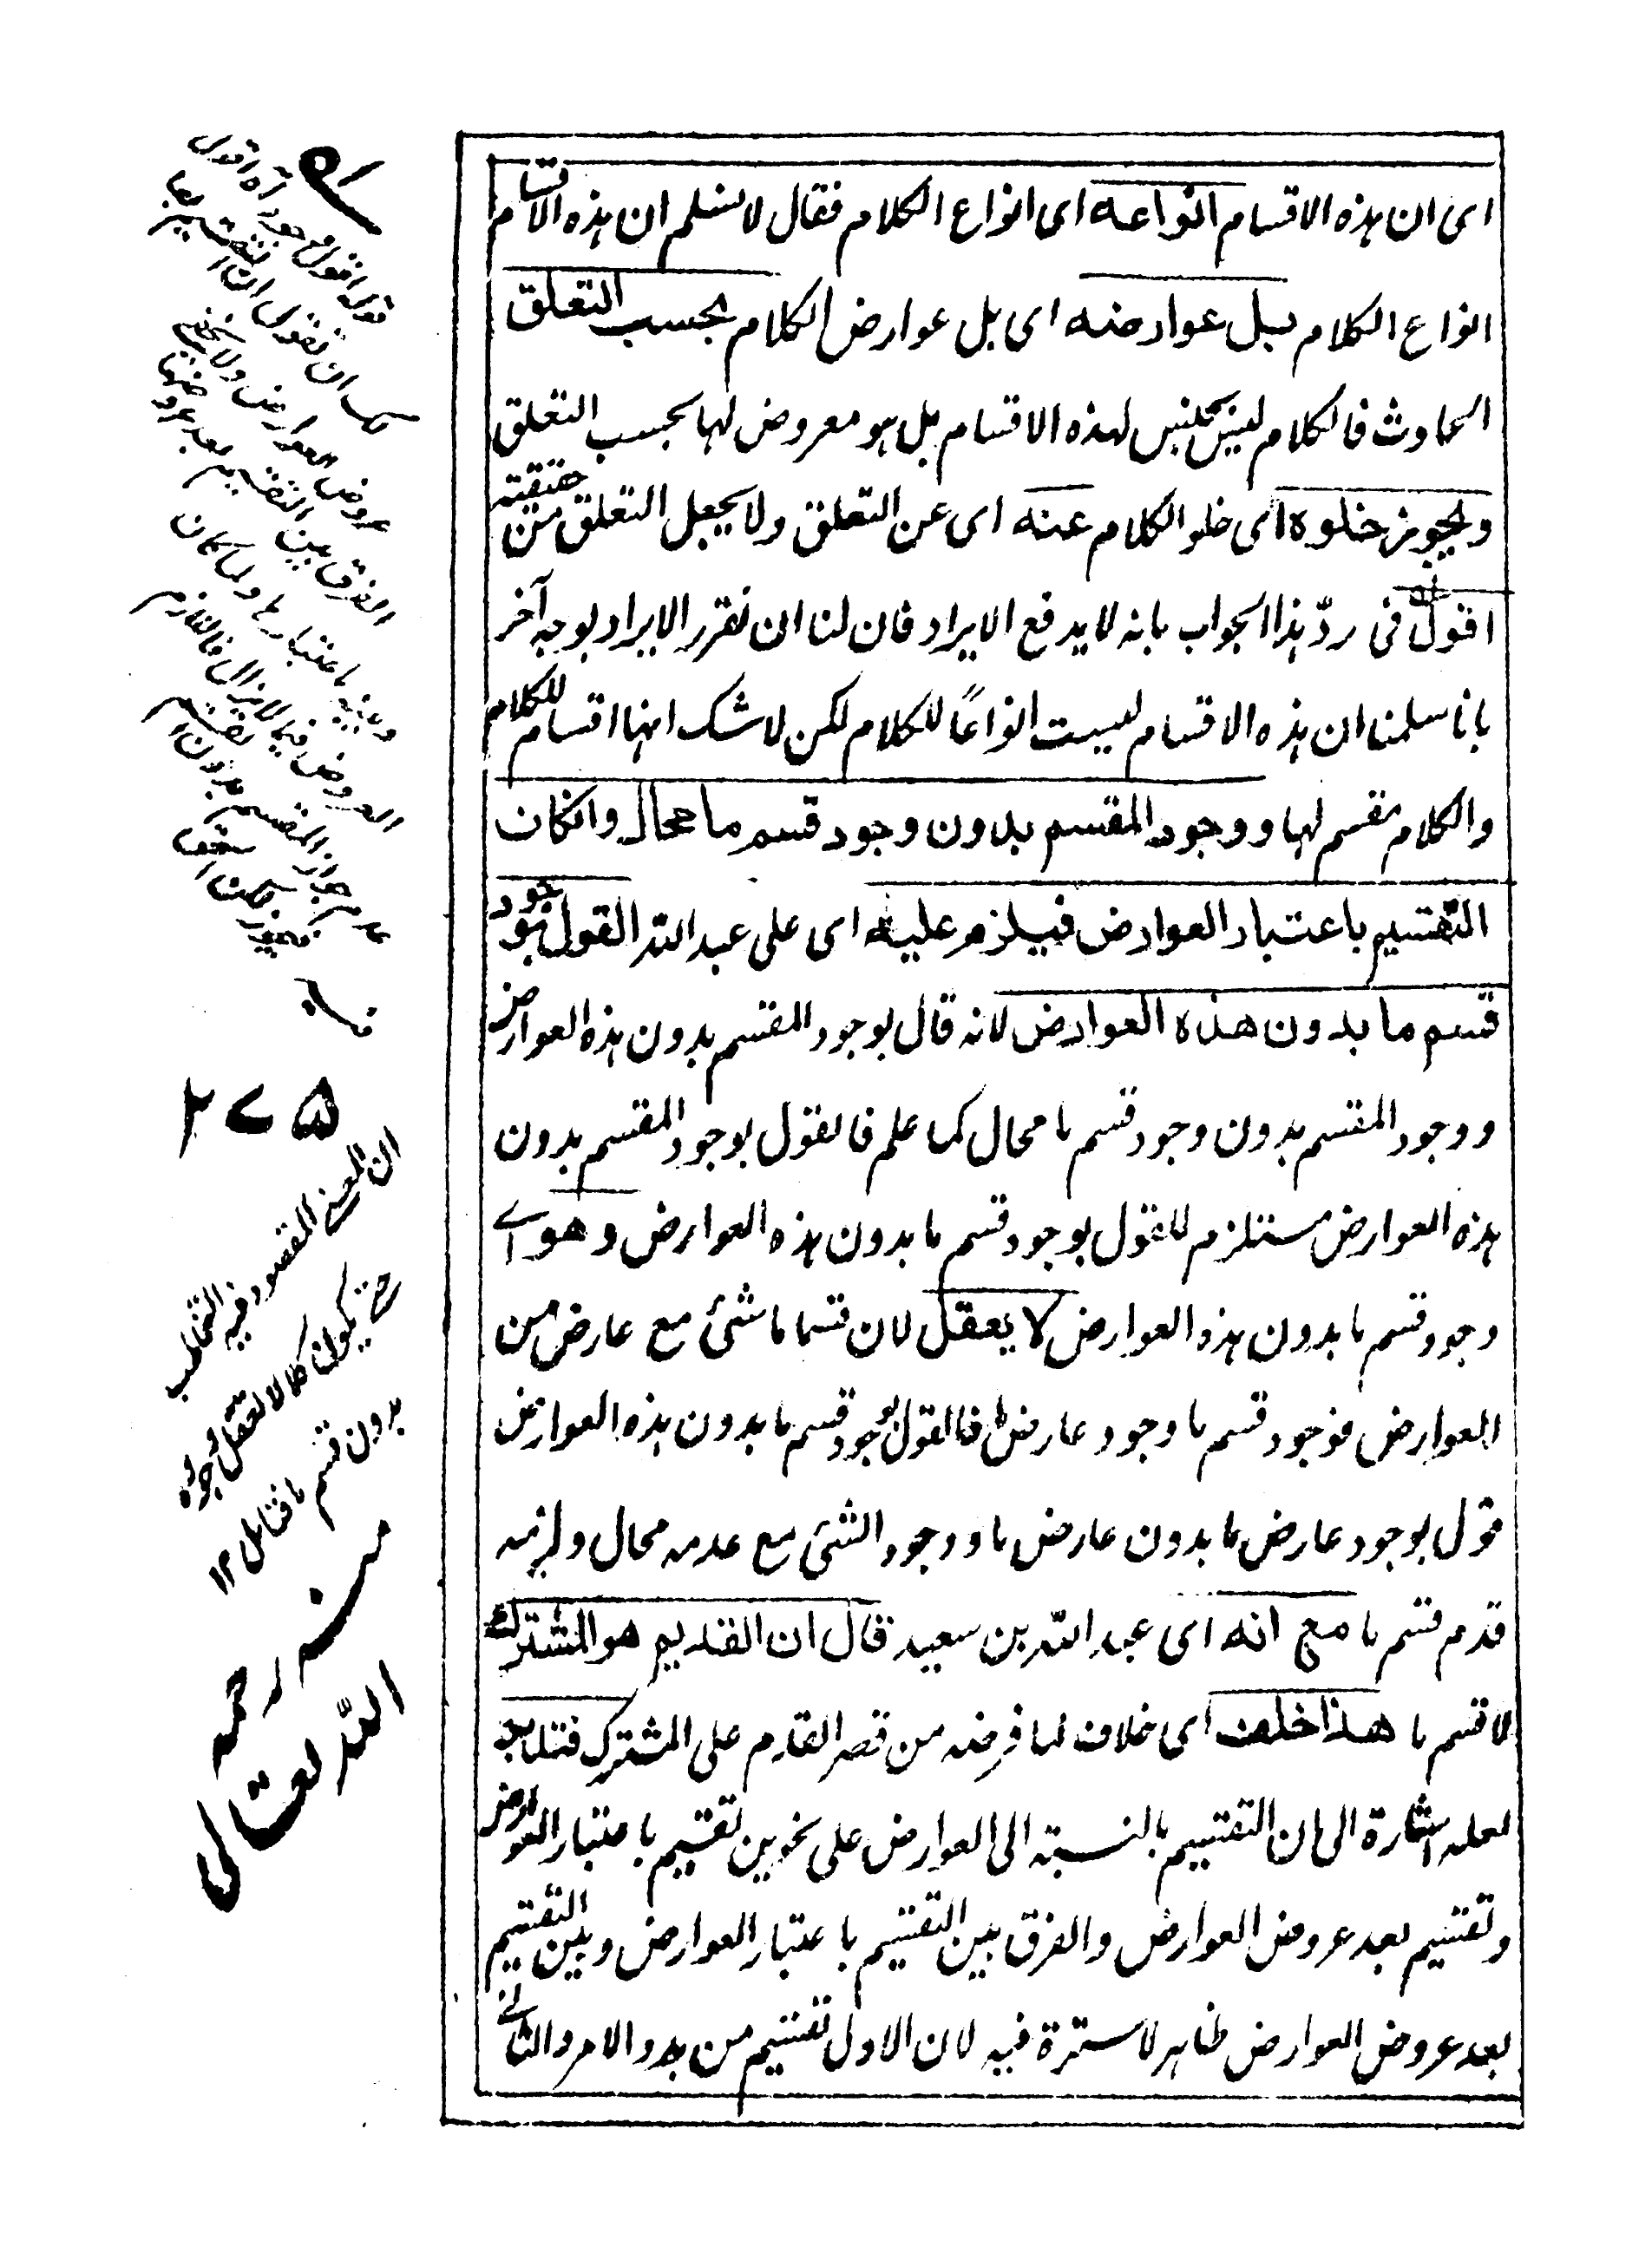 اى ان هذه الاقسام انواعه اى انواع الكلام فقال لا نسلم ان هذه الاقسام
انواع الكلام بل عوارضه اى بل عوارض الكلام بحسب التعلق
الحادث فالكلام ليس بجنس لهذه الاقسام بل هو معروض لها بحسب التعلق
ويجوز خلوه اى خلو الكلام عنه اى عن التعلق ولا يجعل التعلق من حقيقته
اقول فى ردّ هذا الجواب بانه لا يدفع الايراد فان لنا ان نقرر الايراد بوجه آخر
بانا سلمنا ان هذه الاقسام ليست انواعًا للكلام لكن لا شك انها اقسام للكلام
والكلام مقسم لها ووجود المقسم بدون وجود قسم ما محال وانكان
التقسيم باعتبار العوارض فيلزم عليه اى على عبد الله القول بوجود
قسم ما بدون هذه العوارض لانه قال بوجود المقسم بدون هذه العوارض
ووجود المقسم بدون وجود قسم ما محال كما علم فالقول بوجود المقسم بدون
هذه العوارض مستلزم للقول بوجود قسم ما بدون هذه العوارض وهو اے
وجود قسم ما بدون هذه العوارض لا يعقل لان قسما ما شئ مع عارض من
العوارض فوجود قسم ما وجود عارض ما فالقول بوجود قسم ما بدون هذه العوارض
قول بوجود عارض ما بدون عارض ما ووجود الشئ مع عدمه محال ولزمه
قدم قسم ما مع انه اى عبد الله بن سعيد قال ان القديم هو المشترك
لا قسم ما هذا خلف اى خلاف لما فرضه من قصر القدم على المشترك فتدبر
لعله اشارة الى ان التقسيم بالنسبة الى العوارض على نحوين تقسيم باعتبار العوارض
وتقسيم بعد عروض العوارض والفرق بين التقسيم باعتبار العوارض وبين التقسيم
بعد عروض العوارض ظاهر لا سترة فيه لان الاول تقسيم من بدو الامر والثانے
قوله اقول
لك ان تقول ان التقسيم
عروض العوارض ولا يخفى
الفرق بين التقسيم بعد عروضها
وبينه باعتبارها ولما كان
العروض فيما لا يزال فاللازم
عدم جواز المقسم بدون
٢٧٥
ان المعنى المقصود فيه التخاطب
حتى يكون كلاما لا تعقل وجوده
بدون قسم ما فتامل ١٢
منه رحمه
الله تعالى